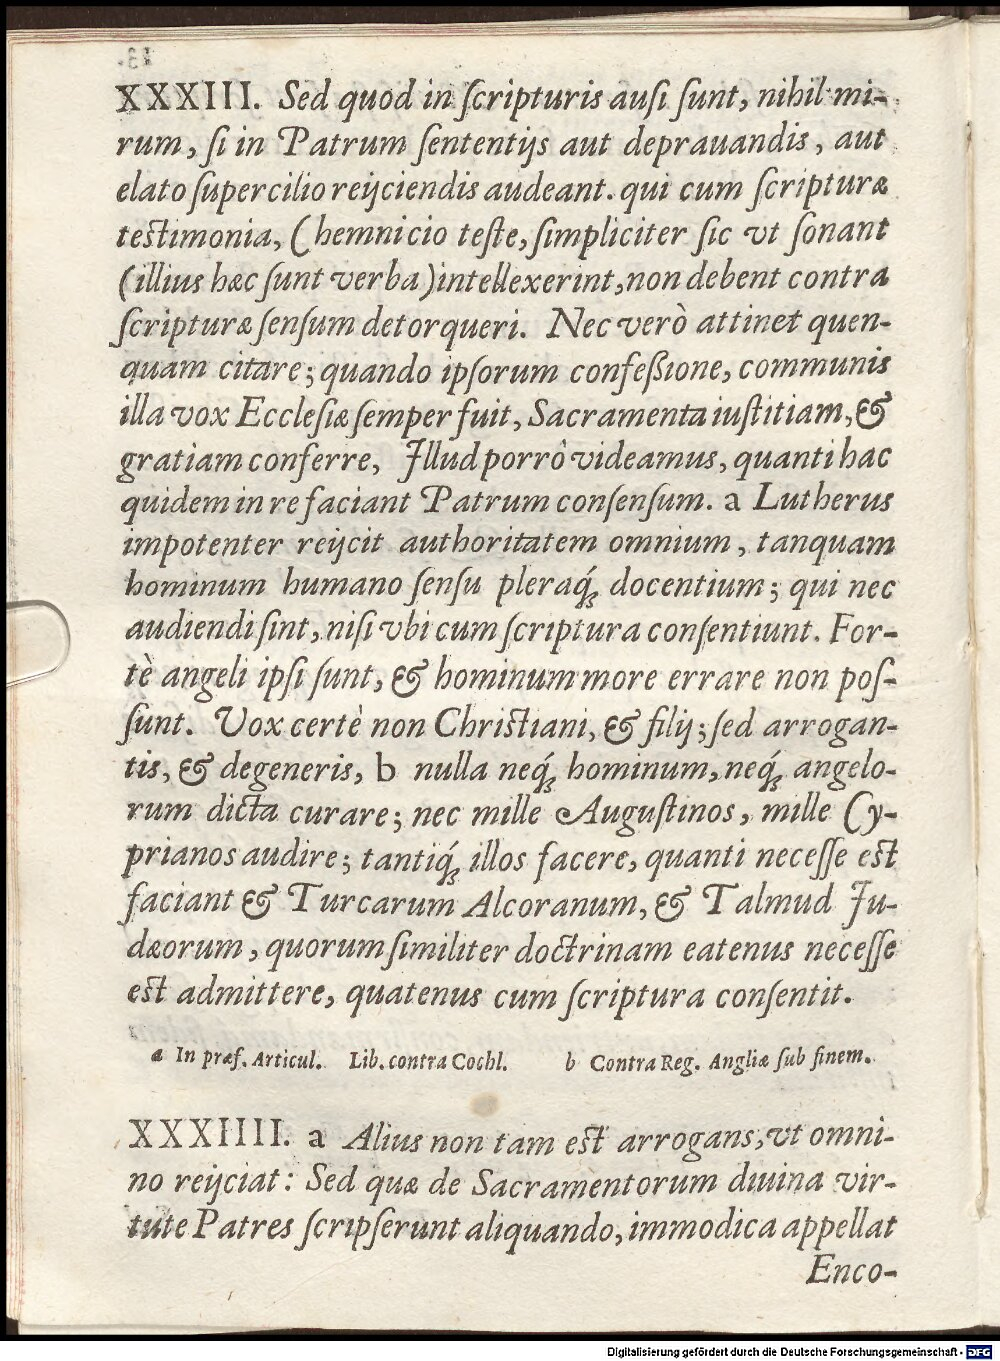 XXXIII. Sed quod in ſcripturis auſi ſunt, nihil mi-
rum, ſi in Patrum ſententijs aut deprauandis, aut
elato ſupercilio reijciendis audeant. qui cum ſcripturæ
testimonia, Chemnicio teſte, ſimpliciter ſic vt ſonant
(illius hæc ſunt verba) intellexerint, non debent contra
ſcripturæ ſenſum detorqueri. Nec verò attinet quen-
quam citare; quando ipſorum confeßione, communis
illa vox Eccleſiæ ſemper fuit, Sacramenta iuſtitiam, &
gratiam conferre, Illud porrò videamus, quanti hac
quidem in re faciant Patrum conſenſum. a Lutherus
impotenter reijcit authoritatem omnium, tanquam
hominum humano ſenſu pleraq́; docentium; qui nec
audiendi ſint, niſi vbi cum ſcriptura conſentiunt. For-
tè angeli ipſi ſunt, & hominum more errare non poſ-
ſunt. Vox certè non Christiani, & filij; ſed arrogan-
tis, & degeneris, b nulla neq́; hominum, neq́; angelo-
rum dicta curare; nec mille Auguſtinos, mille Cy-
prianos audire; tantiq́; illos facere, quanti neceſſe est
faciant & Turcarum Alcoranum, & Talmud Iu-
dæorum, quorum ſimiliter doctrinam eatenus neceſſe
est admittere, quatenus cum ſcriptura conſentit.
a In præf. Articul. Lib. contra Cochl. b Contra Reg. Angliæ ſub finem.
XXXIIII. a Alius non tam est arrogans, vt omni-
no reijciat: Sed quæ de Sacramentorum diuina vir-
tute Patres ſcripſerunt aliquando, immodica appellat
Enco-
Digitalisierung gefördert durch die Deutsche Forschungsgemeinschaft - DFG